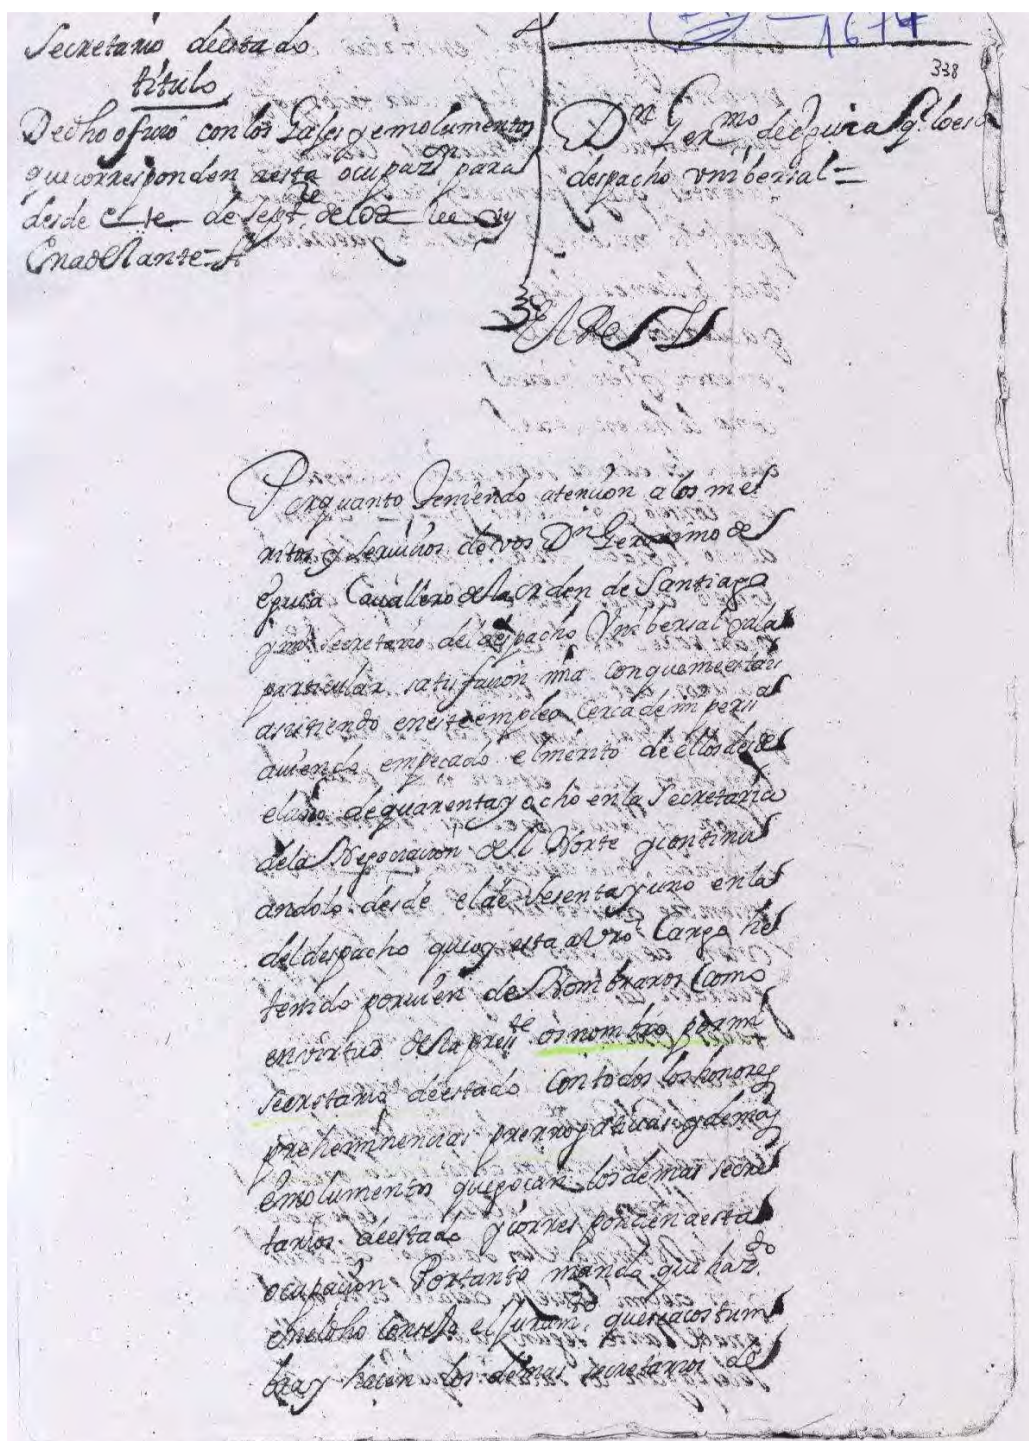 1674
338
Secretario deestado
titulo
Dedho ofiuio con los Gajes y emolumentos
que corresponden aesta ocupazon para
desde de sept.re de
Enadelante=
Dn Germo deeguia q.e loes
despacho vnibersal=
El Rey
Porquanto teniendo atenuon alos me
ritos, y seruiuios de vos Dn Geronimo de
eguia Cauallero dela orden de Santiago
ymi secretario del despacho Vnibersal yala
particular satisfauion mia conquemeestais
asistiendo eneste empleo cerca demi pers.a
auiendo empecado elmerito de ellos desde
elaño dequarentay ocho enla Secretaria
dela Negociauion del Norte ycontinu
andolo desde elde sesentayuno enla
deldespacho queoy esta avro Cargo he
tenido porvien de Nombraros Como
envirtud dela pres.te os nombro pormi
secretario deestado Contodos los honores
preheminencias prerrogatiuas y demas
Emolumentos quegocan losdemas secre
tarios deestado ycorresponden aesta
ocupauion Portanto mando que haz.do
eneldho Conseso el Juram.to queseacostum
bra y hacen los demas secretarios de